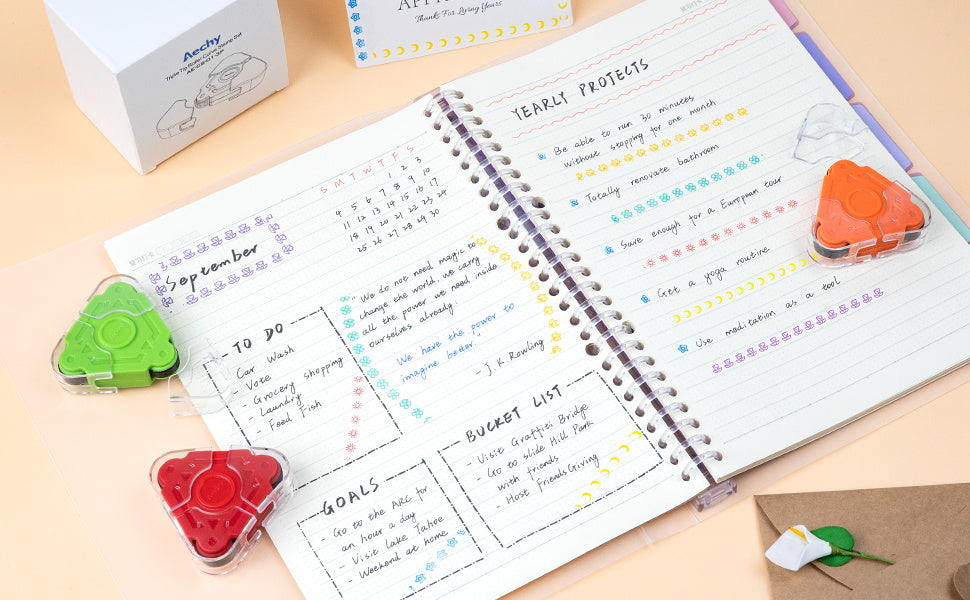 Aechy
Triple Tip Roller Curve Stamp Set
Thank For Living Years
S M T W T F S
1 2 3
4 5 6 7 8 9 10
11 12 13 14 15 16 17
18 19 20 21 22 23 24
25 26 27 28 29 30
September
TO DO
- Car Wash
- Vote
- Grocery shopping
- Laundry
- Food Fish
"We do not need magic to
change the world, we carry
all the power we need inside
ourselves already.
We have the power to
imagine better."
- J. K. Rowling
GOALS
- Go to the ARC for
an hour a day
- Visit Lake Tahoe
- Weekend at home
BUCKET LIST
- Visit Graffiti Bridge
- Go to slide Hill Park
with friends
- Host FriendsGiving
YEARLY PROJECTS
Be able to run 30 minutes
without stopping for one month
Totally renovate bathroom
Save enough for a European tour
Get a yoga routine
Use meditation as a tool